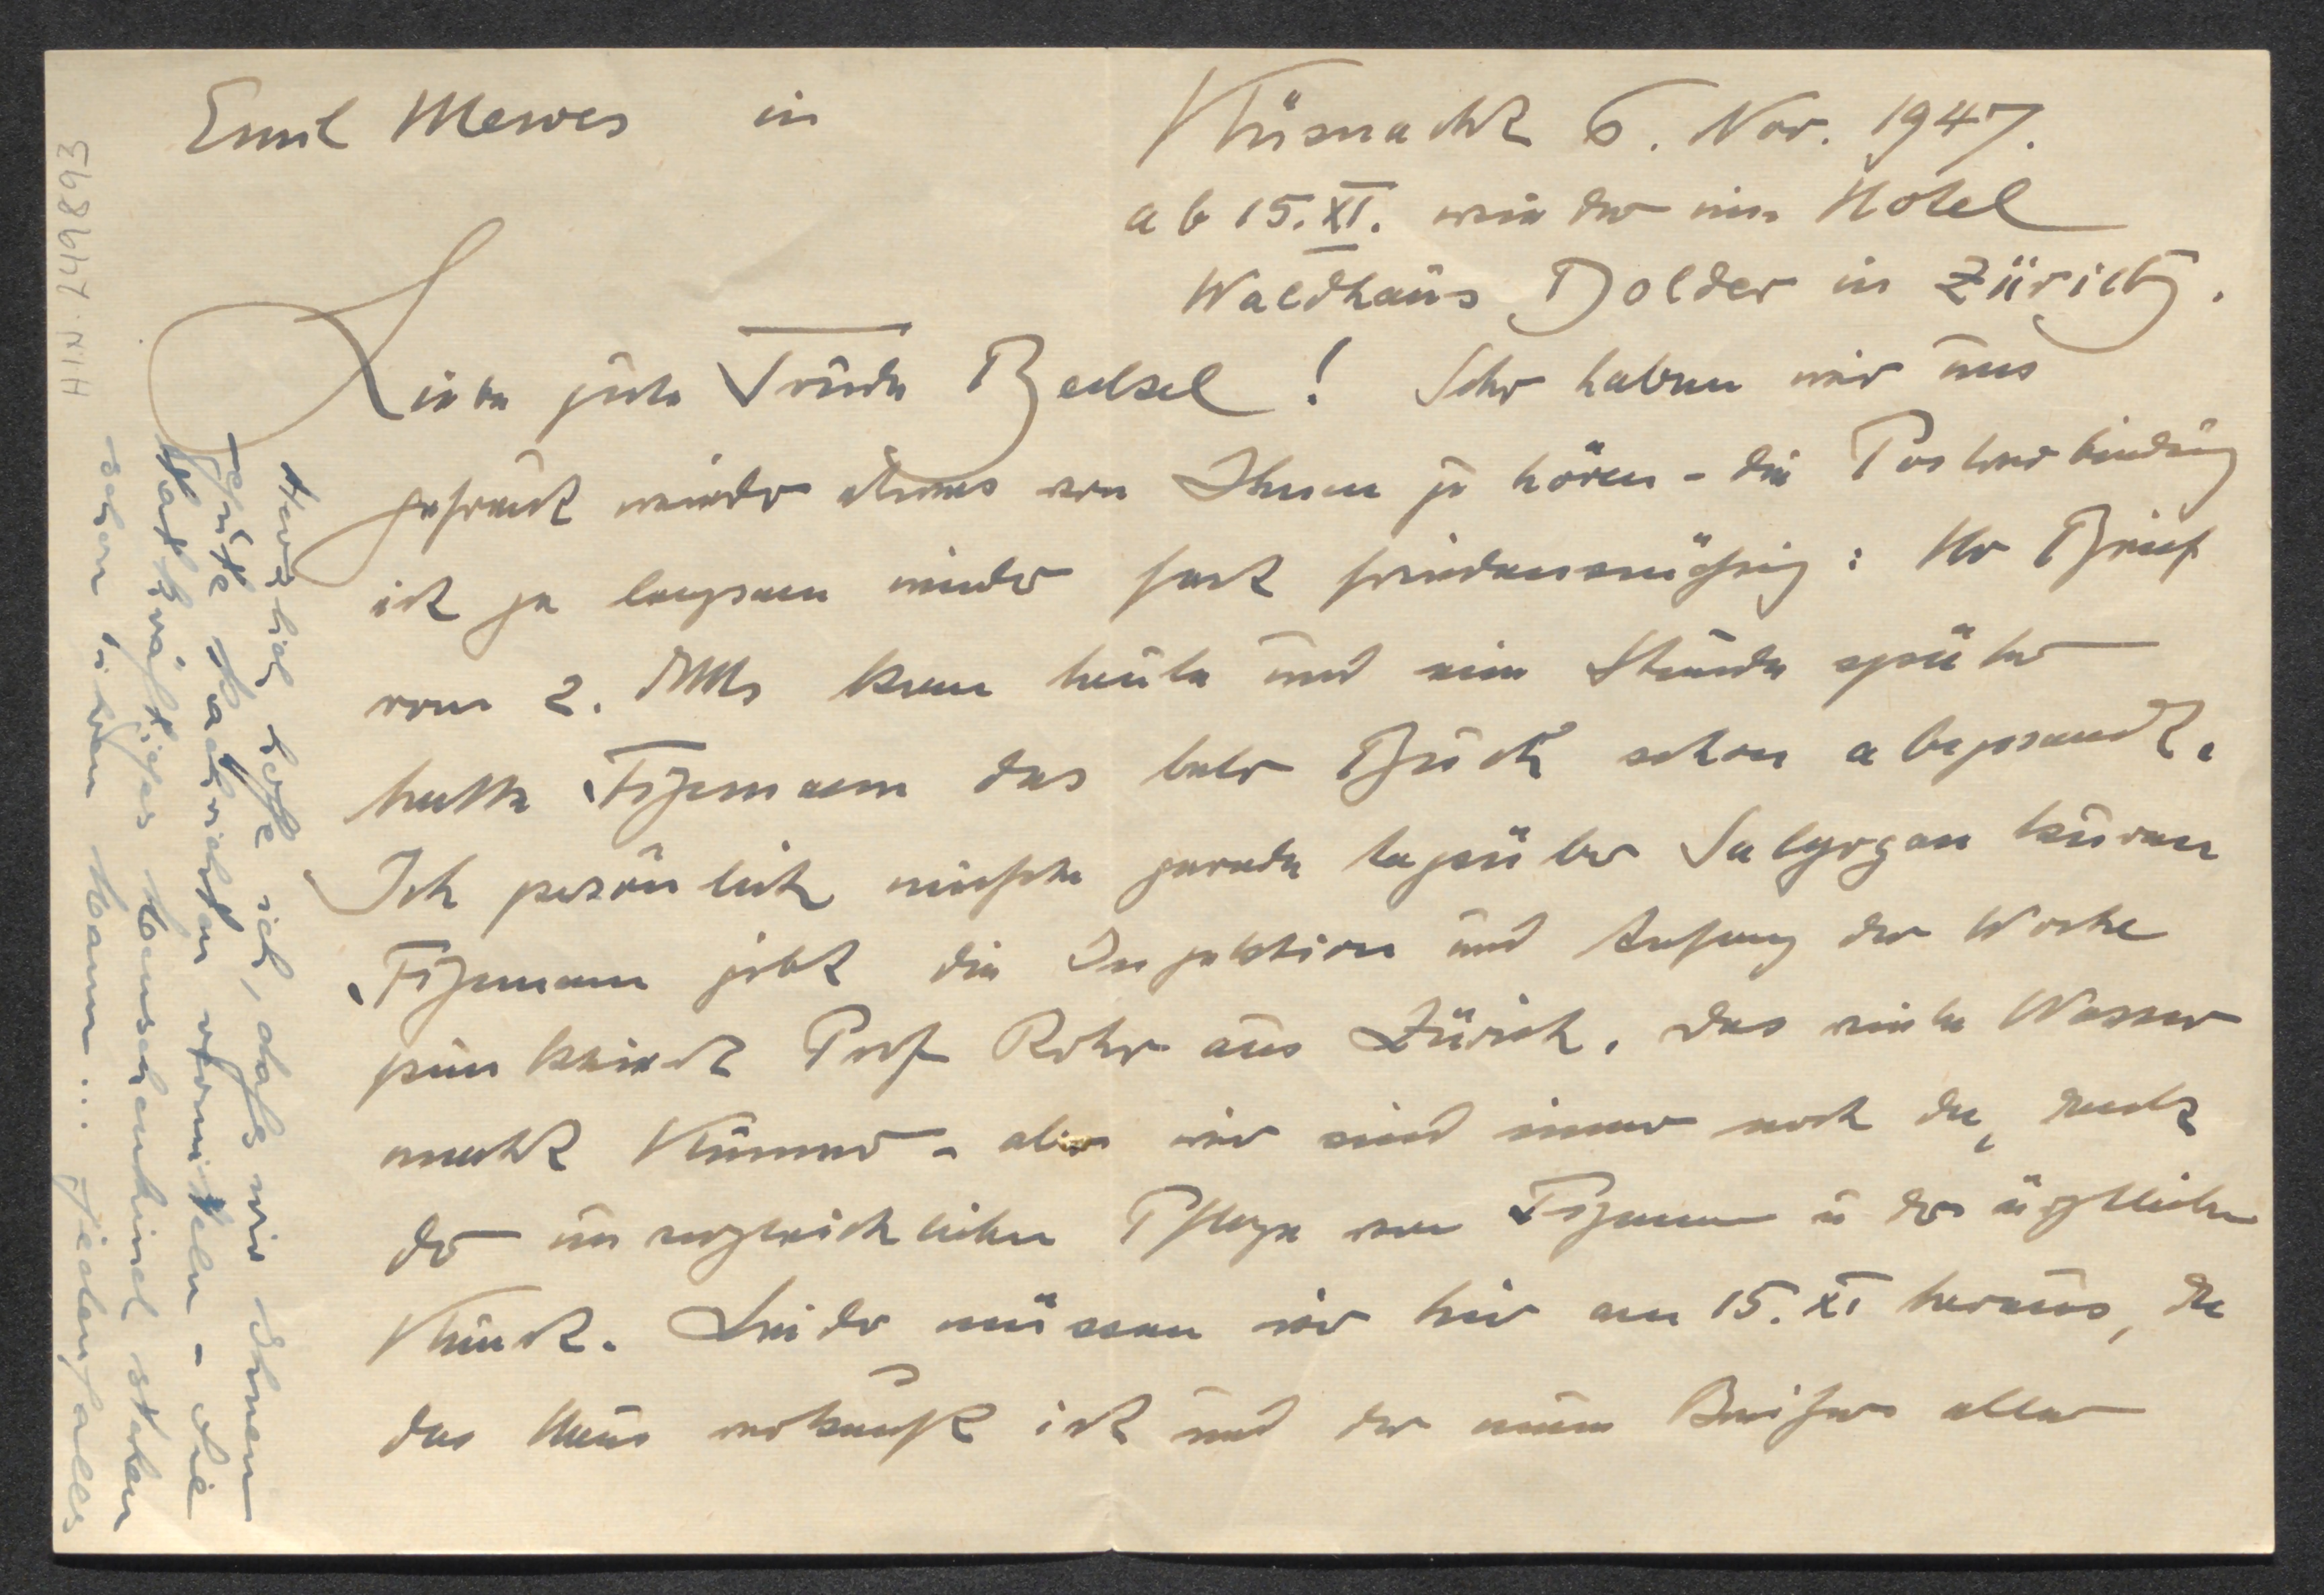 Emil Mewes in Küsnacht 6. Nov. 1947.
ab 15. XI. wieder im Hotel
Waldhaus Dolder in Zürich.
Liebe gute Trude Bechsel! Sehr haben wir uns
gefreut wieder etwas von Ihnen zu hören - die Postverbindung
ist ja langsam wieder fast friedensmäßig: Ihr Brief
vom 2. kam heute und eine Stunde später
hatte das liebe Buch schon abgesandt.
Ich persönlich mußte gerade tagsüber Salyrgan kuren
gibt die Injektion und Anfang der Woche
punktiert Prof Rohr aus Zürich. Das viele Wasser
macht Kummer - aber wir sind immer noch da, dank
der unvergleichlichen Pflege von u der ärztlichen
Kunst. Leider müssen wir hier am 15. XI heraus, da
das Haus verkauft ist und der neue Besitzer aller
Herzlich hoffe ich, dass wir Ihnen
gute Nachrichten vermitteln - die
Hat kräftiges Menschenkind
schon üben kann ... jedenfalls
H.I.N. 244893